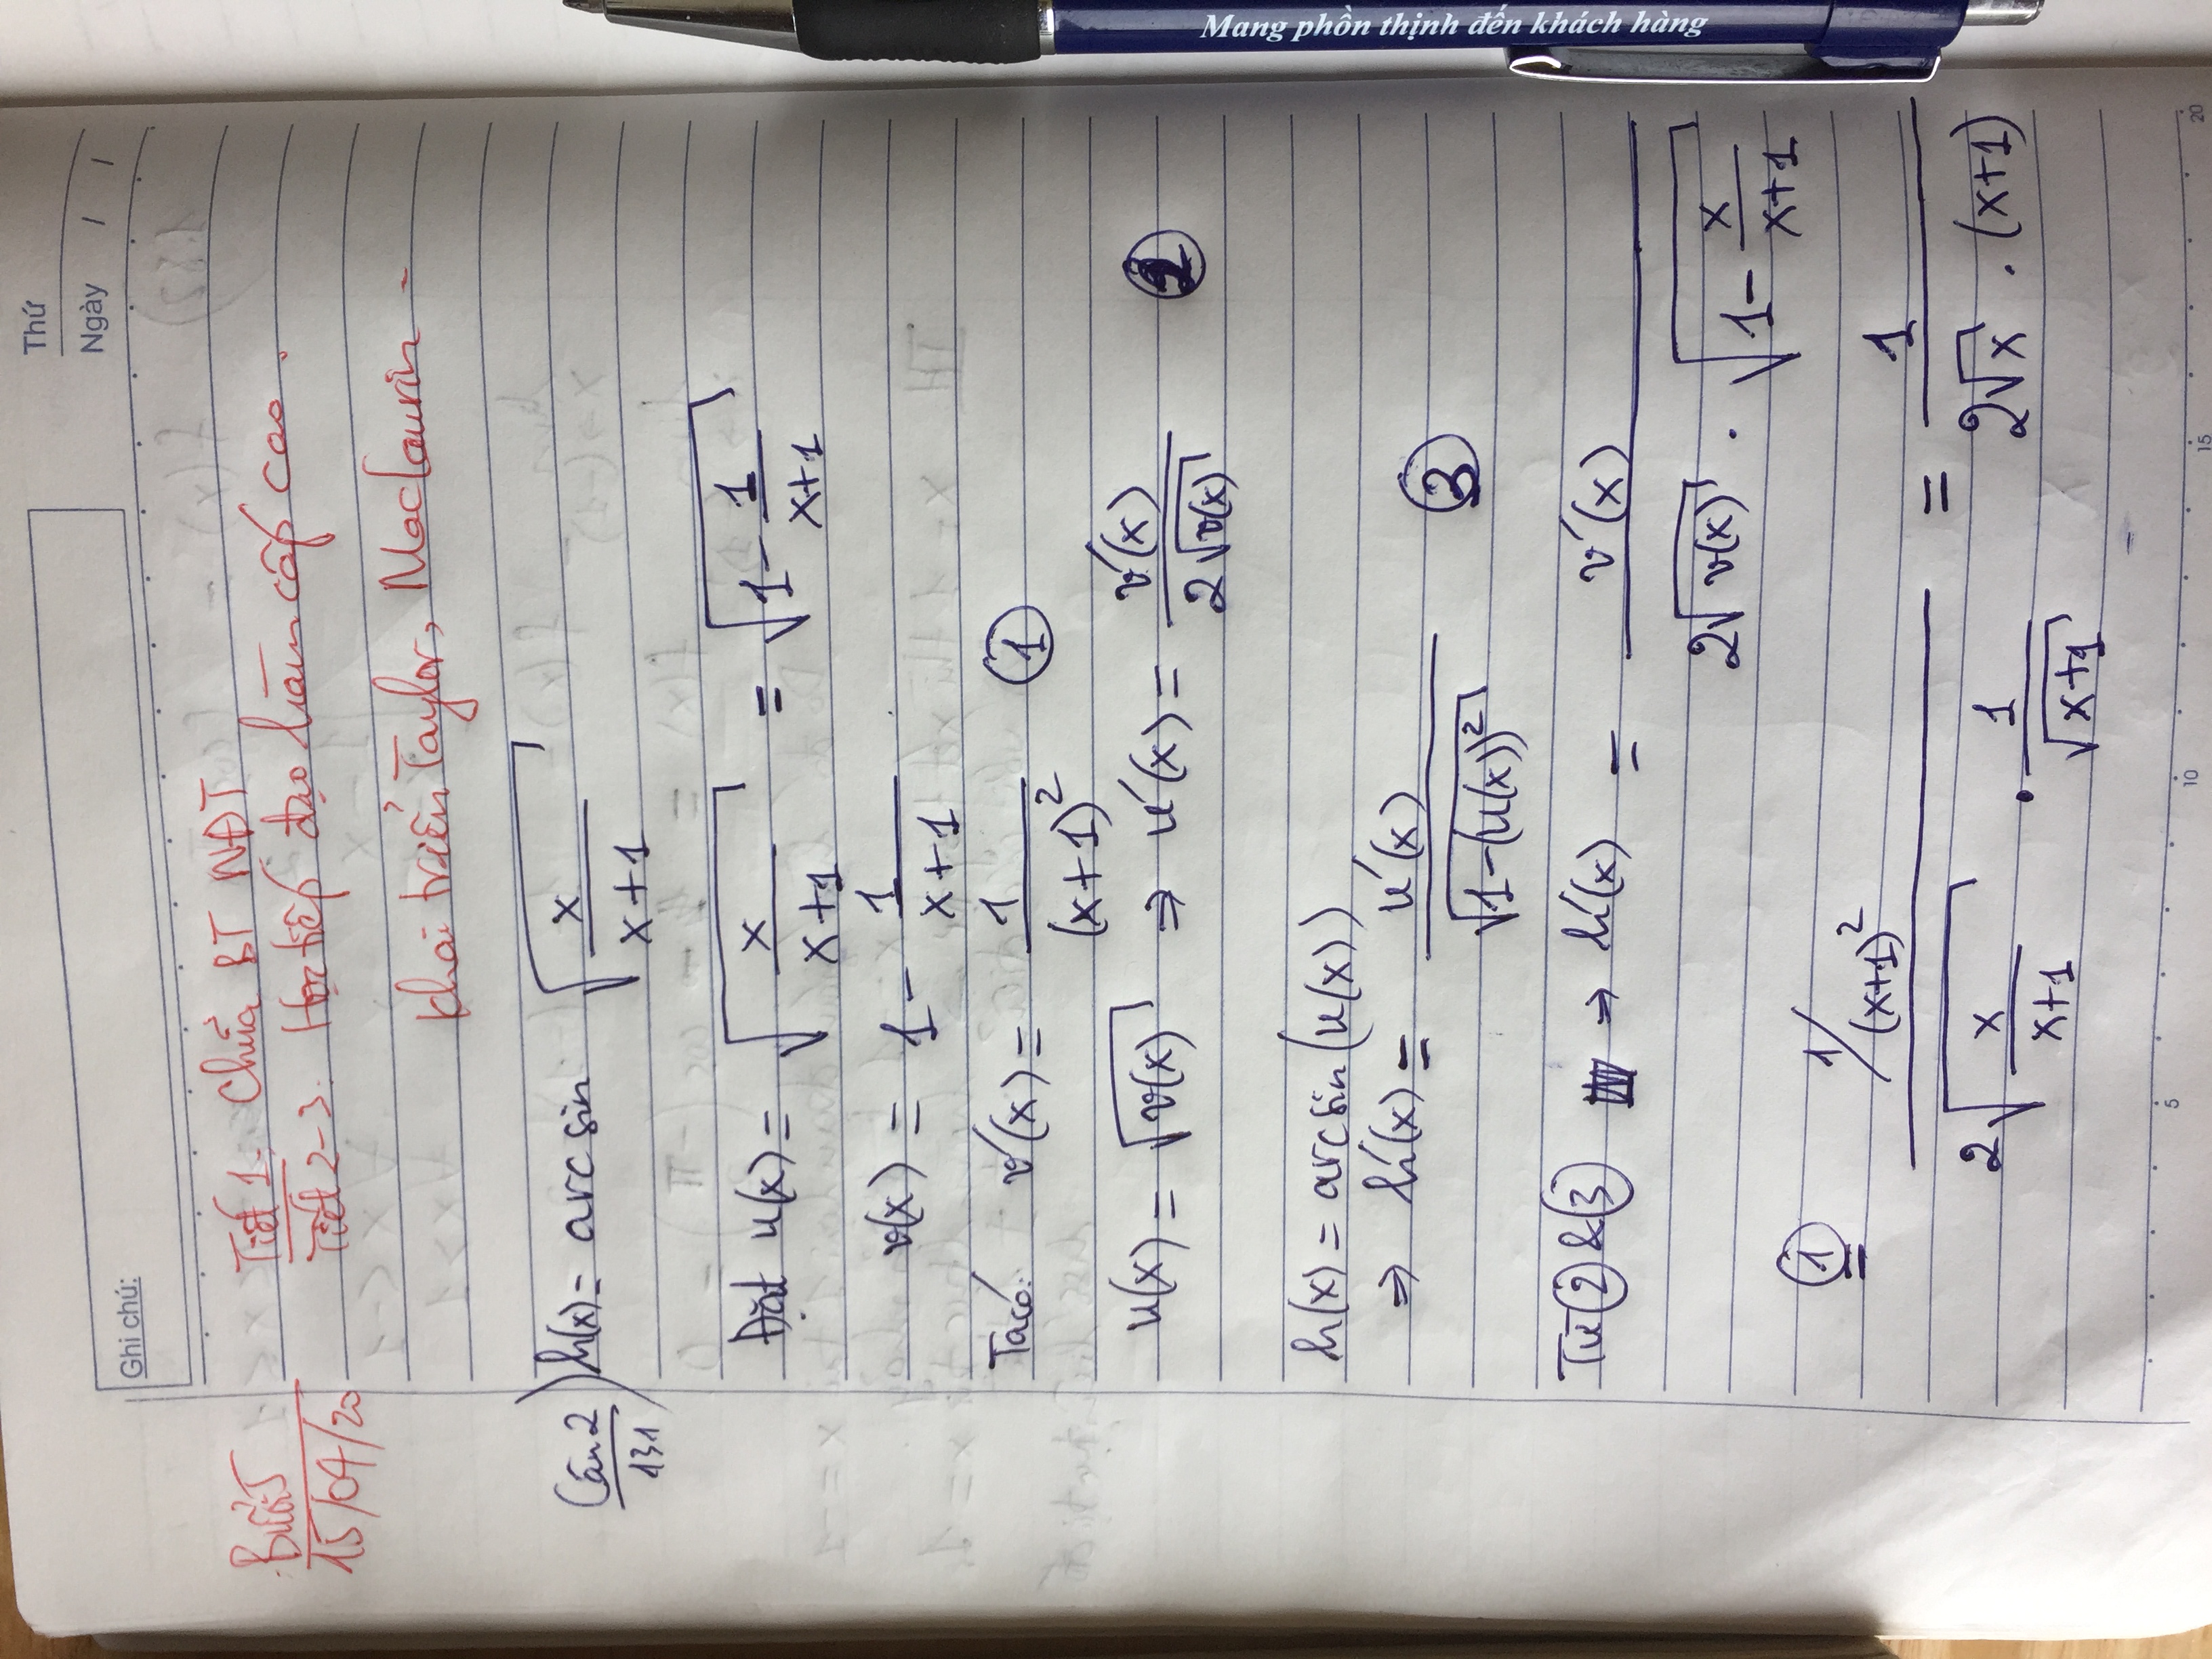 Thứ
Ngày / /
Ghi chú:
Buổi 5
15/04/20
Tiết 1. Chữa BT NĐT
Tiết 2-3. Học tiếp đạo hàm cấp cao.
Khai triển Taylor, Maclaurin -
Câu 2/131) h(x) = arcsin √(x/(x+1))
Đặt u(x) = √(x/(x+1)) = √(1 - 1/(x+1))
v(x) = 1 - 1/(x+1)
Ta có: v'(x) = 1/(x+1)² ①
u(x) = √v(x) ⇒ u'(x) = v'(x)/(2√v(x)) ②
h(x) = arcsin(u(x))
⇒ h'(x) = u'(x)/√(1-(u(x))²) ③
Từ ② & ③ ⇒ h'(x) = v'(x)/(2√v(x) . √(1 - x/(x+1)))
① = (1/(x+1)²)/(2√(x/(x+1)) . 1/√(x+1)) = 1/(2√x . (x+1))
Mang phồn thịnh đến khách hàng
5 10 15 20